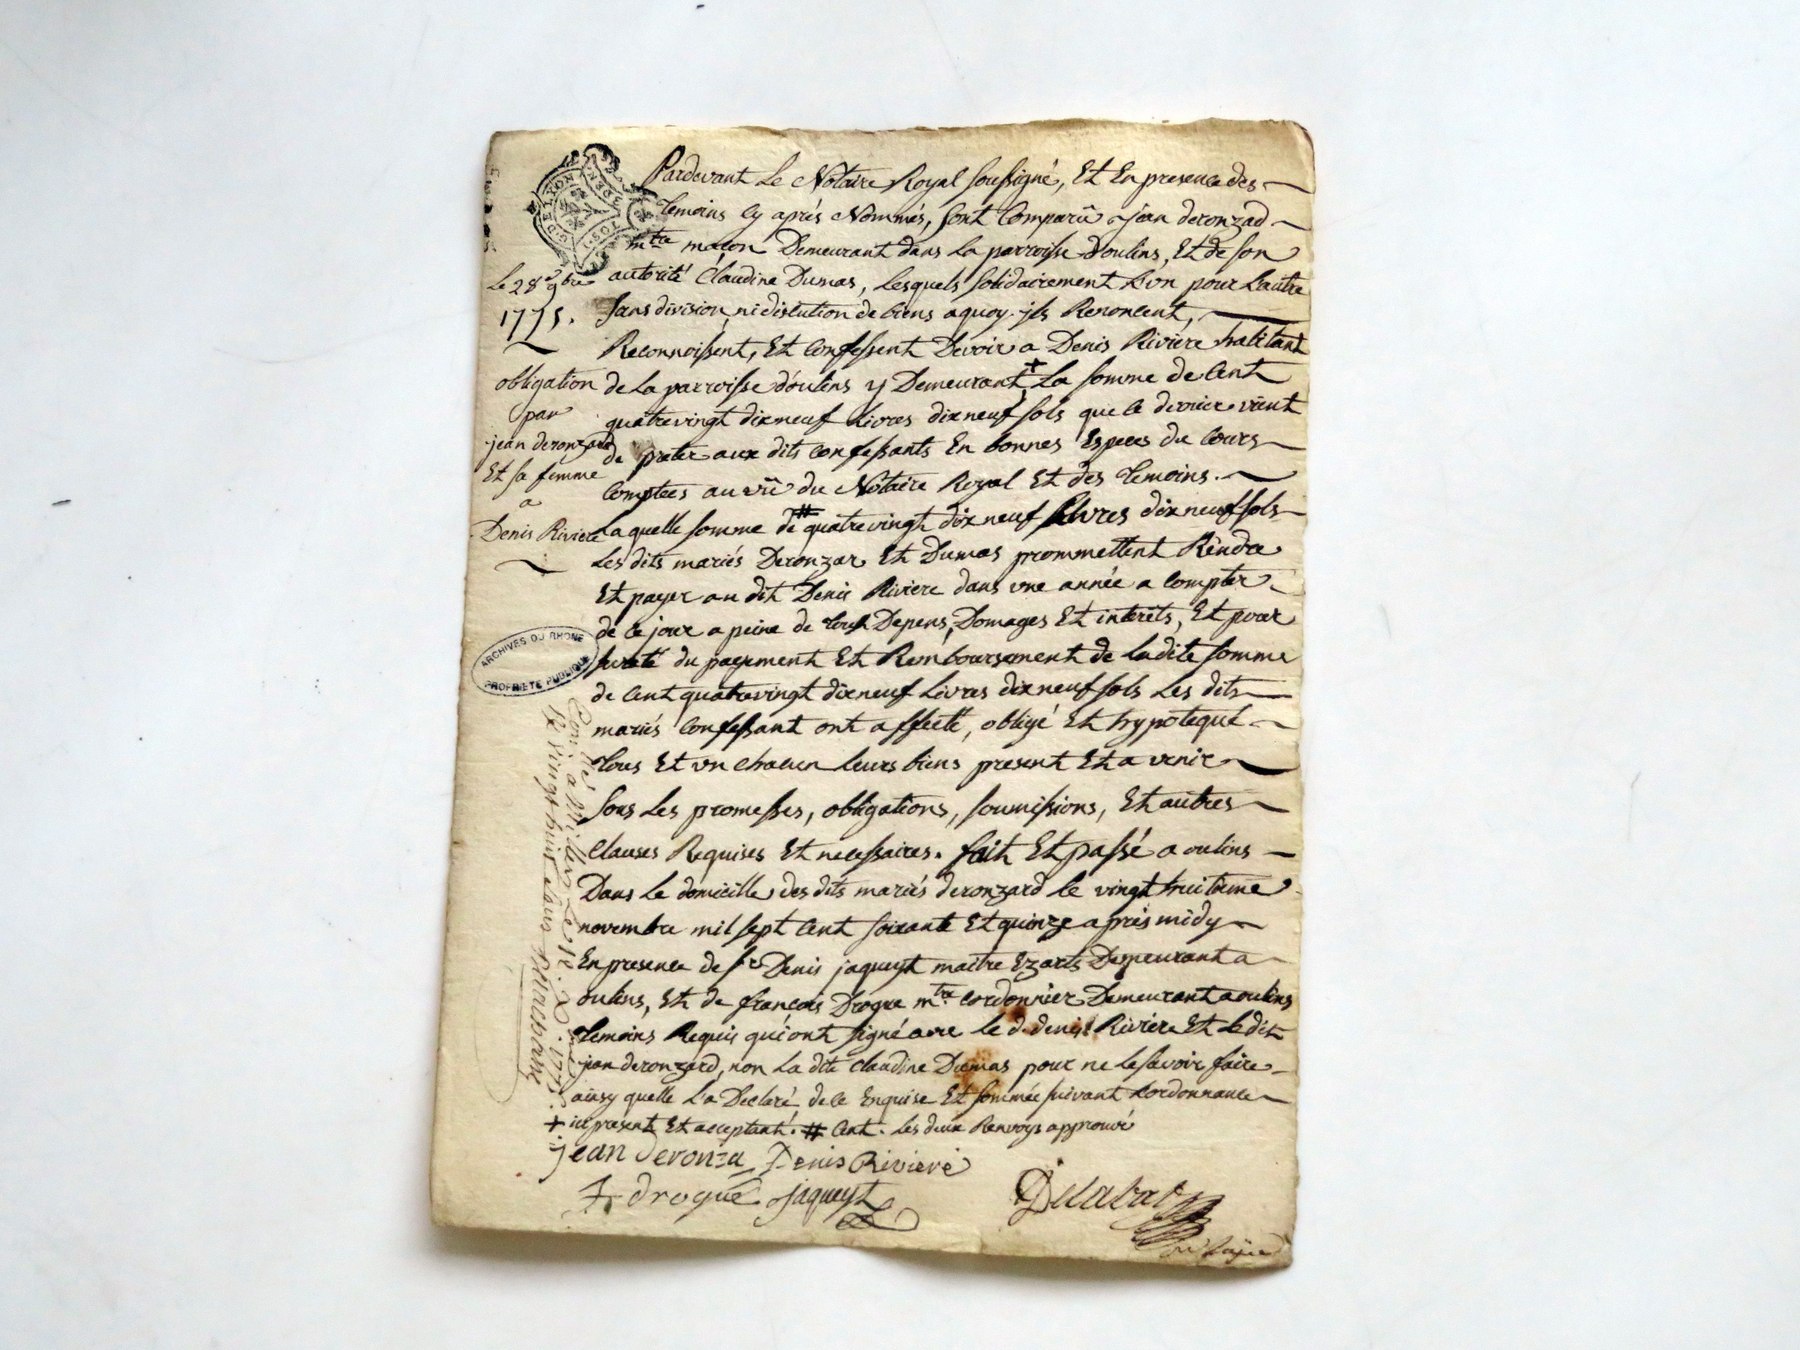 Pardevant Le Notaire Royal soussigné, Et En presence des
temoins Cy aprés Nommés, sont Comparû jean deronzad
mtre maçon Demeurant dans La parroisse d'oulins, Et de son
autorité Claudine Dumas, Lesquels solidairement L'un pour L'autre
sans division, ni discution de biens a quoy ils Renoncent,
Reconnoissent, Et Confessent Devoir a Denis Riviere habitant
de La parroisse d'oulins y Demeurant + La somme de Cent
quatrevingt dixneuf Livres dixneuf sols que le dernier vient
de preter aux dits Confessants En bonnes Especes du Cours
Comptées au vû du Notaire Royal Et des temoins.
Laquelle somme de # quatrevingt dix neuf Livres dix neuf sols
Les dits mariés Deronzar Et Dumas prommettent Rendre
Et payer au dit Denis Riviere dans une année a Compter
de Ce jour a peine de tous Depens, Domages Et interets, Et pour
sureté du payement Et Remboursement de Ladite somme
de Cent quatrevingt dixneuf Livres dixneuf sols Les dits
mariés Confessant ont affecté, obligé Et hypotequé
tous Et un chacun leurs biens present Et a venir
sous Les promesses, obligations, soumissions, Et autres
Clauses Requises Et necessaires. fait Et passé a oulins
Dans Le domicille des dits mariés deronzard le vingt huitieme
novembre mil sept Cent soixante Et quinze aprés midy
En presence de sr Denis jaqueyt maitre Demeurant a
oulins, Et de françois Drogue mtre Cordonnier Demeurant a oulins
temoins Requis qui ont signé avec le d. denis Riviere Et Le dit
jean deronzard, non La dite Claudine Dumas pour ne le savoir faire
ainsy quelle L'a Declaré, de Ce Enquise Et sommée suivant L'ordonnance
+ ici present Et acceptant. # Cent. Les deux Renvoys approuvé
jean deronza Denis Riviere
f drogue jaqueyt
Delabat
Le 28e 9bre
1775.
obligation
par
jean deronzard
Et sa femme
a
Denis Riviere
ARCHIVES DU RHONE
PROPRIETE PUBLIQUE